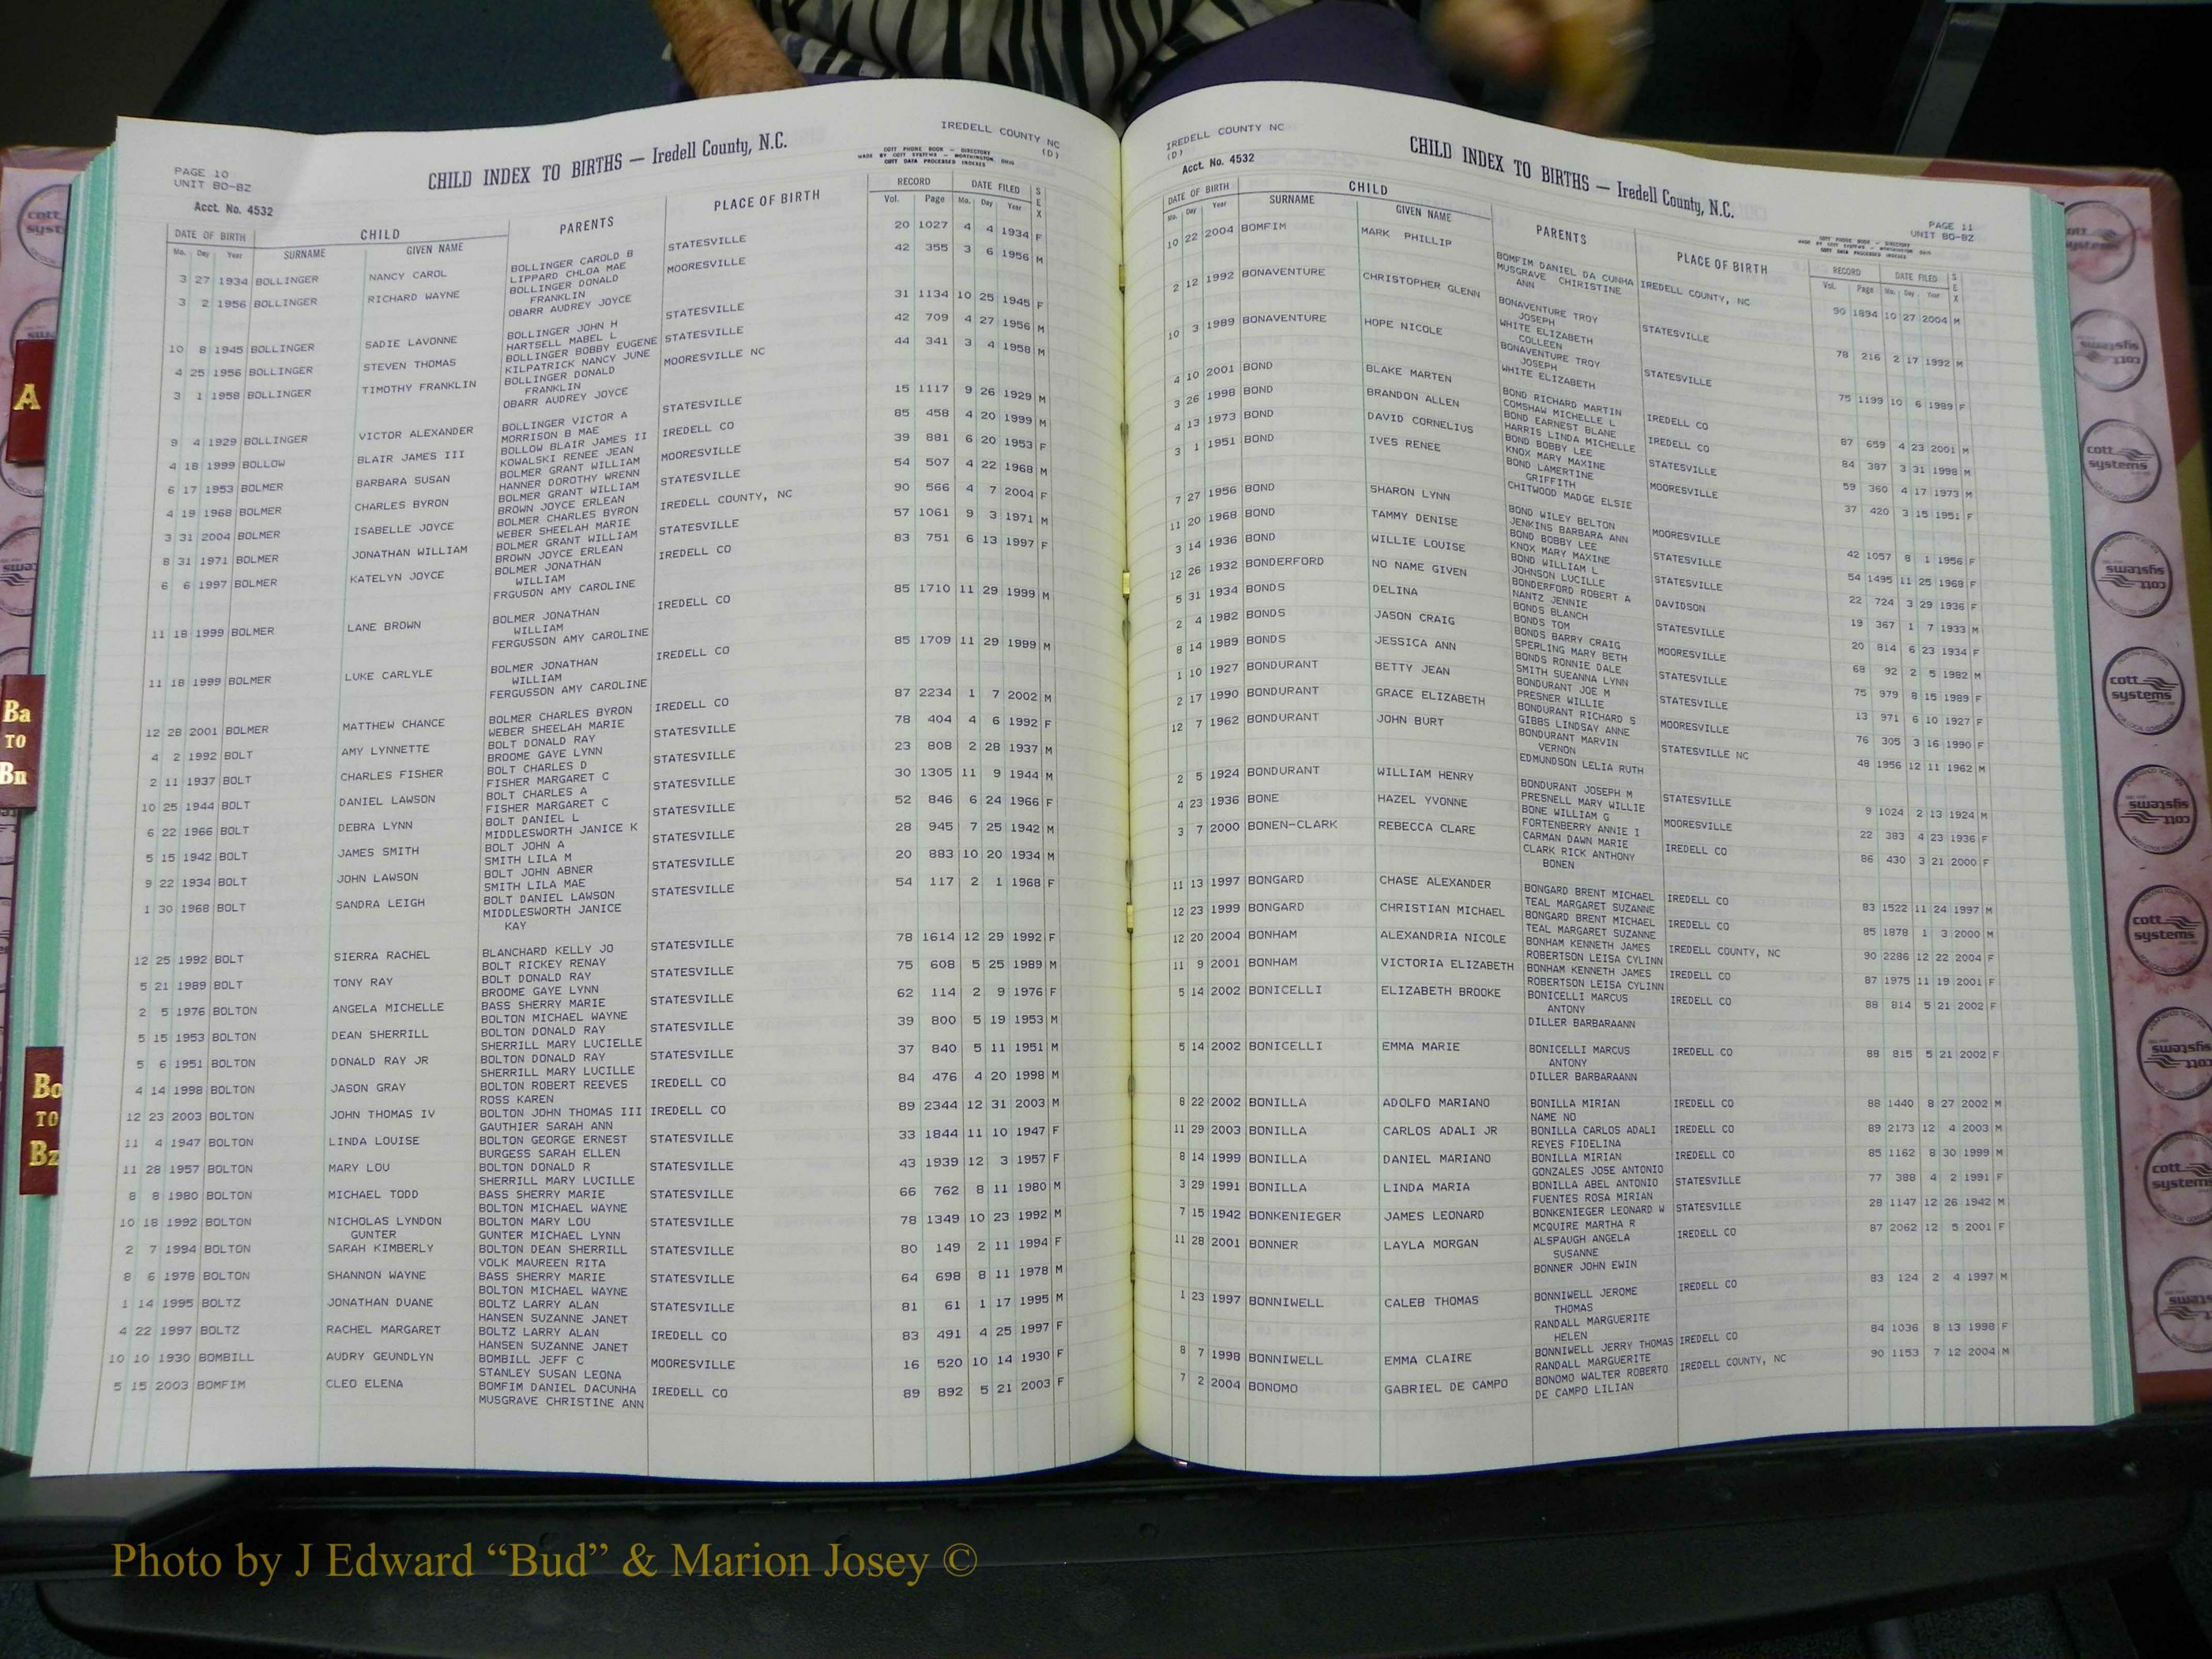 PAGE 10
UNIT BO-BZ
Acct. No. 4532
CHILD INDEX TO BIRTHS — Iredell County, N.C.
IREDELL COUNTY NC
(D)
COTT PHONE BOOK — DIRECTORY
MADE BY COTT SYSTEMS — WORTHINGTON, OHIO
COTT DATA PROCESSED INDEXES
DATE OF BIRTH CHILD PARENTS PLACE OF BIRTH RECORD DATE FILED SEX
Mo. Day Year SURNAME GIVEN NAME Vol. Page Mo. Day Year
3 27 1934 BOLLINGER NANCY CAROL BOLLINGER CAROLD B STATESVILLE 20 1027 4 4 1934 F
LIPPARD CHLOA MAE
3 2 1956 BOLLINGER RICHARD WAYNE BOLLINGER DONALD MOORESVILLE 42 355 3 6 1956 M
FRANKLIN
OBARR AUDREY JOYCE
10 8 1945 BOLLINGER SADIE LAVONNE BOLLINGER JOHN H STATESVILLE 31 1134 10 25 1945 F
HARTSELL MABEL L
4 25 1956 BOLLINGER STEVEN THOMAS BOLLINGER BOBBY EUGENE STATESVILLE 42 709 4 27 1956 M
KILPATRICK NANCY JUNE
3 1 1958 BOLLINGER TIMOTHY FRANKLIN BOLLINGER DONALD MOORESVILLE NC 44 341 3 4 1958 M
FRANKLIN
OBARR AUDREY JOYCE
9 4 1929 BOLLINGER VICTOR ALEXANDER BOLLINGER VICTOR A STATESVILLE 15 1117 9 26 1929 M
MORRISON B MAE
4 18 1999 BOLLOW BLAIR JAMES III BOLLOW BLAIR JAMES II IREDELL CO 85 458 4 20 1999 M
KOWALSKI RENEE JEAN
6 17 1953 BOLMER BARBARA SUSAN BOLMER GRANT WILLIAM MOORESVILLE 39 881 6 20 1953 F
HANNER DOROTHY WRENN
4 19 1968 BOLMER CHARLES BYRON BOLMER GRANT WILLIAM STATESVILLE 54 507 4 22 1968 M
BROWN JOYCE ERLEAN
3 31 2004 BOLMER ISABELLE JOYCE BOLMER CHARLES BYRON IREDELL COUNTY, NC 90 566 4 7 2004 F
WEBER SHEELAH MARIE
8 31 1971 BOLMER JONATHAN WILLIAM BOLMER GRANT WILLIAM STATESVILLE 57 1061 9 3 1971 M
BROWN JOYCE ERLEAN
6 6 1997 BOLMER KATELYN JOYCE BOLMER JONATHAN IREDELL CO 83 751 6 13 1997 F
WILLIAM
FRGUSON AMY CAROLINE
11 18 1999 BOLMER LANE BROWN BOLMER JONATHAN IREDELL CO 85 1710 11 29 1999 M
WILLIAM
FERGUSSON AMY CAROLINE
11 18 1999 BOLMER LUKE CARLYLE BOLMER JONATHAN IREDELL CO 85 1709 11 29 1999 M
WILLIAM
FERGUSSON AMY CAROLINE
12 28 2001 BOLMER MATTHEW CHANCE BOLMER CHARLES BYRON IREDELL CO 87 2234 1 7 2002 M
WEBER SHEELAH MARIE
4 2 1992 BOLT AMY LYNNETTE BOLT DONALD RAY STATESVILLE 78 404 4 6 1992 F
BROOME GAYE LYNN
2 11 1937 BOLT CHARLES FISHER BOLT CHARLES D STATESVILLE 23 808 2 28 1937 M
FISHER MARGARET C
10 25 1944 BOLT DANIEL LAWSON BOLT CHARLES A STATESVILLE 30 1305 11 9 1944 M
FISHER MARGARET C
6 22 1966 BOLT DEBRA LYNN BOLT DANIEL L STATESVILLE 52 846 6 24 1966 F
MIDDLESWORTH JANICE K
5 15 1942 BOLT JAMES SMITH BOLT JOHN A STATESVILLE 28 945 7 25 1942 M
SMITH LILA M
9 22 1934 BOLT JOHN LAWSON BOLT JOHN ABNER STATESVILLE 20 883 10 20 1934 M
SMITH LILA MAE
1 30 1968 BOLT SANDRA LEIGH BOLT DANIEL LAWSON STATESVILLE 54 117 2 1 1968 F
MIDDLESWORTH JANICE
KAY
12 25 1992 BOLT SIERRA RACHEL BLANCHARD KELLY JO STATESVILLE 78 1614 12 29 1992 F
BOLT RICKEY RENAY
5 21 1989 BOLT TONY RAY BOLT DONALD RAY STATESVILLE 75 608 5 25 1989 M
BROOME GAYE LYNN
2 5 1976 BOLTON ANGELA MICHELLE BASS SHERRY MARIE STATESVILLE 62 114 2 9 1976 F
BOLTON MICHAEL WAYNE
5 15 1953 BOLTON DEAN SHERRILL BOLTON DONALD RAY STATESVILLE 39 800 5 19 1953 M
SHERRILL MARY LUCIELLE
5 6 1951 BOLTON DONALD RAY JR BOLTON DONALD RAY STATESVILLE 37 840 5 11 1951 M
SHERRILL MARY LUCILLE
4 14 1998 BOLTON JASON GRAY BOLTON ROBERT REEVES IREDELL CO 84 476 4 20 1998 M
ROSS KAREN
12 23 2003 BOLTON JOHN THOMAS IV BOLTON JOHN THOMAS III IREDELL CO 89 2344 12 31 2003 M
GAUTHIER SARAH ANN
11 4 1947 BOLTON LINDA LOUISE BOLTON GEORGE ERNEST STATESVILLE 33 1844 11 10 1947 F
BURGESS SARAH ELLEN
11 28 1957 BOLTON MARY LOU BOLTON DONALD R STATESVILLE 43 1939 12 3 1957 F
SHERRILL MARY LUCILLE
8 8 1980 BOLTON MICHAEL TODD BASS SHERRY MARIE STATESVILLE 66 762 8 11 1980 M
BOLTON MICHAEL WAYNE
10 18 1992 BOLTON NICHOLAS LYNDON BOLTON MARY LOU STATESVILLE 78 1349 10 23 1992 M
GUNTER GUNTER MICHAEL LYNN
2 7 1994 BOLTON SARAH KIMBERLY BOLTON DEAN SHERRILL STATESVILLE 80 149 2 11 1994 F
VOLK MAUREEN RITA
8 6 1978 BOLTON SHANNON WAYNE BASS SHERRY MARIE STATESVILLE 64 698 8 11 1978 M
BOLTON MICHAEL WAYNE
1 14 1995 BOLTZ JONATHAN DUANE BOLTZ LARRY ALAN STATESVILLE 81 61 1 17 1995 M
HANSEN SUZANNE JANET
4 22 1997 BOLTZ RACHEL MARGARET BOLTZ LARRY ALAN IREDELL CO 83 491 4 25 1997 F
HANSEN SUZANNE JANET
10 10 1930 BOMBILL AUDRY GEUNDLYN BOMBILL JEFF C MOORESVILLE 16 520 10 14 1930 F
STANLEY SUSAN LEONA
5 15 2003 BOMFIM CLEO ELENA BOMFIM DANIEL DACUNHA IREDELL CO 89 892 5 21 2003 F
MUSGRAVE CHRISTINE ANN
IREDELL COUNTY NC
(D)
Acct. No. 4532
CHILD INDEX TO BIRTHS — Iredell County, N.C.
PAGE 11
UNIT BO-BZ
COTT PHONE BOOK — DIRECTORY
MADE BY COTT SYSTEMS — WORTHINGTON, OHIO
COTT DATA PROCESSED INDEXES
DATE OF BIRTH CHILD PARENTS PLACE OF BIRTH RECORD DATE FILED SEX
Mo. Day Year SURNAME GIVEN NAME Vol. Page Mo. Day Year
10 22 2004 BOMFIM MARK PHILLIP BOMFIM DANIEL DA CUNHA IREDELL COUNTY, NC 90 1894 10 27 2004 M
MUSGRAVE CHIRISTINE
ANN
2 12 1992 BONAVENTURE CHRISTOPHER GLENN BONAVENTURE TROY STATESVILLE 78 216 2 17 1992 M
JOSEPH
WHITE ELIZABETH
COLLEEN
10 3 1989 BONAVENTURE HOPE NICOLE BONAVENTURE TROY STATESVILLE 75 1199 10 6 1989 F
JOSEPH
WHITE ELIZABETH
4 10 2001 BOND BLAKE MARTEN BOND RICHARD MARTIN IREDELL CO 87 659 4 23 2001 M
COMSHAW MICHELLE L
3 26 1998 BOND BRANDON ALLEN BOND EARNEST BLANE IREDELL CO 84 387 3 31 1998 M
HARRIS LINDA MICHELLE
4 13 1973 BOND DAVID CORNELIUS BOND BOBBY LEE STATESVILLE 59 360 4 17 1973 M
KNOX MARY MAXINE
3 1 1951 BOND IVES RENEE BOND LAMERTINE MOORESVILLE 37 420 3 15 1951 F
GRIFFITH
CHITWOOD MADGE ELSIE
7 27 1956 BOND SHARON LYNN BOND WILEY BELTON MOORESVILLE 42 1057 8 1 1956 F
JENKINS BARBARA ANN
11 20 1968 BOND TAMMY DENISE BOND BOBBY LEE STATESVILLE 54 1495 11 25 1968 F
KNOX MARY MAXINE
3 14 1936 BOND WILLIE LOUISE BOND WILLIAM L STATESVILLE 22 724 3 29 1936 F
JOHNSON LUCILLE
12 26 1932 BONDERFORD NO NAME GIVEN BONDERFORD ROBERT A DAVIDSON 19 367 1 7 1933 M
NANTZ JENNIE
5 31 1934 BONDS DELINA BONDS BLANCH STATESVILLE 20 814 6 23 1934 F
BONDS TOM
2 4 1982 BONDS JASON CRAIG BONDS BARRY CRAIG MOORESVILLE 68 92 2 5 1982 M
SPERLING MARY BETH
8 14 1989 BONDS JESSICA ANN BONDS RONNIE DALE STATESVILLE 75 979 8 15 1989 F
SMITH SUEANNA LYNN
1 10 1927 BONDURANT BETTY JEAN BONDURANT JOE M STATESVILLE 13 971 6 10 1927 F
PRESNER WILLIE
2 17 1990 BONDURANT GRACE ELIZABETH BONDURANT RICHARD S MOORESVILLE 76 305 3 16 1990 F
GIBBS LINDSAY ANNE
12 7 1962 BONDURANT JOHN BURT BONDURANT MARVIN STATESVILLE NC 48 1956 12 11 1962 M
VERNON
EDMUNDSON LELIA RUTH
2 5 1924 BONDURANT WILLIAM HENRY BONDURANT JOSEPH M STATESVILLE 9 1024 2 13 1924 M
PRESNELL MARY WILLIE
4 23 1936 BONE HAZEL YVONNE BONE WILLIAM G MOORESVILLE 22 383 4 23 1936 F
FORTENBERRY ANNIE I
3 7 2000 BONEN-CLARK REBECCA CLARE CARMAN DAWN MARIE IREDELL CO 86 430 3 21 2000 F
CLARK RICK ANTHONY
BONEN
11 13 1997 BONGARD CHASE ALEXANDER BONGARD BRENT MICHAEL IREDELL CO 83 1522 11 24 1997 M
TEAL MARGARET SUZANNE
12 23 1999 BONGARD CHRISTIAN MICHAEL BONGARD BRENT MICHAEL IREDELL CO 85 1878 1 3 2000 M
TEAL MARGARET SUZANNE
12 20 2004 BONHAM ALEXANDRIA NICOLE BONHAM KENNETH JAMES IREDELL COUNTY, NC 90 2286 12 22 2004 F
ROBERTSON LEISA CYLINN
11 9 2001 BONHAM VICTORIA ELIZABETH BONHAM KENNETH JAMES IREDELL CO 87 1975 11 19 2001 F
ROBERTSON LEISA CYLINN
5 14 2002 BONICELLI ELIZABETH BROOKE BONICELLI MARCUS IREDELL CO 88 814 5 21 2002 F
ANTONY
DILLER BARBARAANN
5 14 2002 BONICELLI EMMA MARIE BONICELLI MARCUS IREDELL CO 88 815 5 21 2002 F
ANTONY
DILLER BARBARAANN
8 22 2002 BONILLA ADOLFO MARIANO BONILLA MIRIAN IREDELL CO 88 1440 8 27 2002 M
NAME NO
11 29 2003 BONILLA CARLOS ADALI JR BONILLA CARLOS ADALI IREDELL CO 89 2173 12 4 2003 M
REYES FIDELINA
8 14 1999 BONILLA DANIEL MARIANO BONILLA MIRIAN IREDELL CO 85 1162 8 30 1999 M
GONZALES JOSE ANTONIO
3 29 1991 BONILLA LINDA MARIA BONILLA ABEL ANTONIO STATESVILLE 77 388 4 2 1991 F
FUENTES ROSA MIRIAN
7 15 1942 BONKENIEGER JAMES LEONARD BONKENIEGER LEONARD W STATESVILLE 28 1147 12 26 1942 M
MCQUIRE MARTHA R
11 28 2001 BONNER LAYLA MORGAN ALSPAUGH ANGELA IREDELL CO 87 2062 12 5 2001 F
SUSANNE
BONNER JOHN EWIN
1 23 1997 BONNIWELL CALEB THOMAS BONNIWELL JEROME IREDELL CO 83 124 2 4 1997 M
THOMAS
RANDALL MARGUERITE
HELEN
8 7 1998 BONNIWELL EMMA CLAIRE BONNIWELL JERRY THOMAS IREDELL CO 84 1036 8 13 1998 F
RANDALL MARGUERITE
7 2 2004 BONOMO GABRIEL DE CAMPO BONOMO WALTER ROBERTO IREDELL COUNTY, NC 90 1153 7 12 2004 M
DE CAMPO LILIAN
A
Ba
TO
Bn
Bo
TO
Bz
cott
systems
Photo by J Edward “Bud” & Marion Josey ©